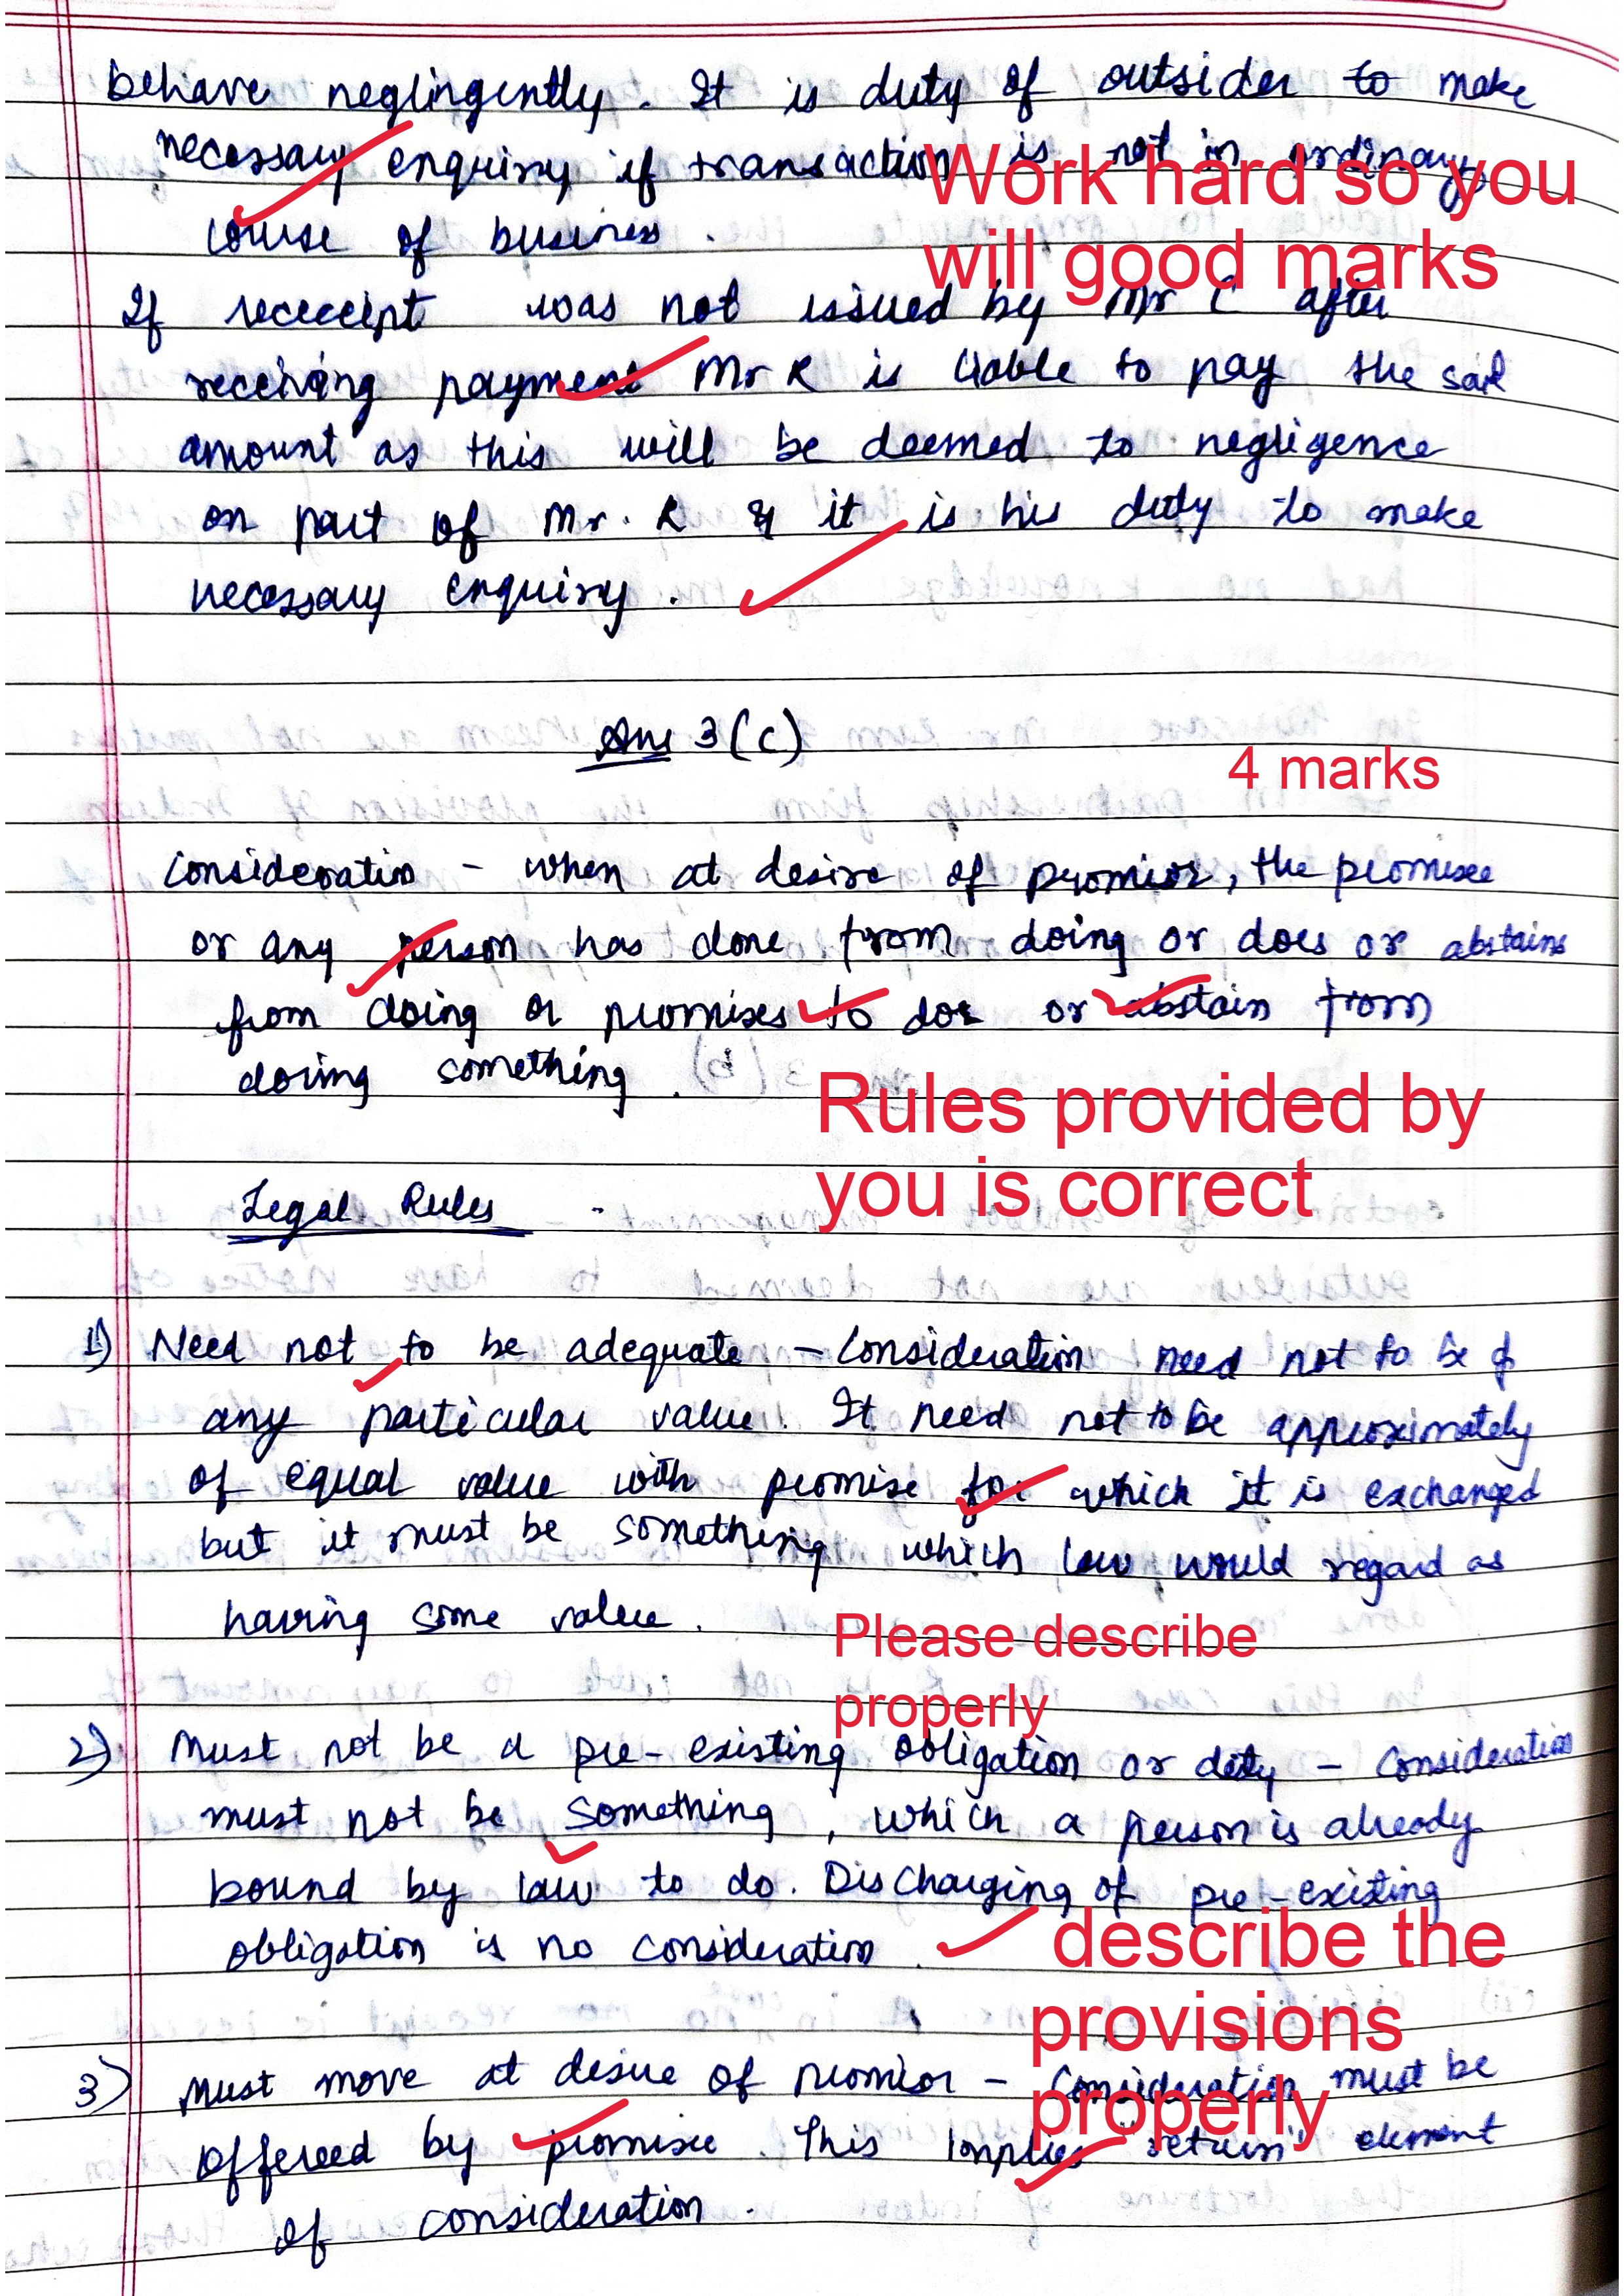 behave neglingently. It is duty of outsider to make
necessary enquiry if transaction is not in ordinary
course of business.
Work hard so you
will good marks
If rececceipt was not issued by Mr C after
receiving payment Mr R is liable to pay the said
amount as this will be deemed to negligence
on part of Mr. R & it is his duty to make
necessary enquiry.
Ans 3(c)
4 marks
Consideration - when at desire of promisor, the promisee
or any person has done from doing or does or abstains
from doing or promises to do or abstain from
doing something.
Rules provided by
you is correct
Legal Rules -
1) Need not to be adequate - Consideration need not to be of
any particular value. It need not to be approximately
of equal value with promise for which it is exchanged
but it must be something which law would regard as
having some value.
Please describe
properly
2) Must not be a pre-existing obligation or duty - Consideration
must not be something, which a person is already
bound by law to do. Discharging of pre-existing
obligation is no consideration.
describe the
provisions
properly
3) Must move at desire of promisor - Consideration must be
offered by promisee. This implies "return" element
of consideration.